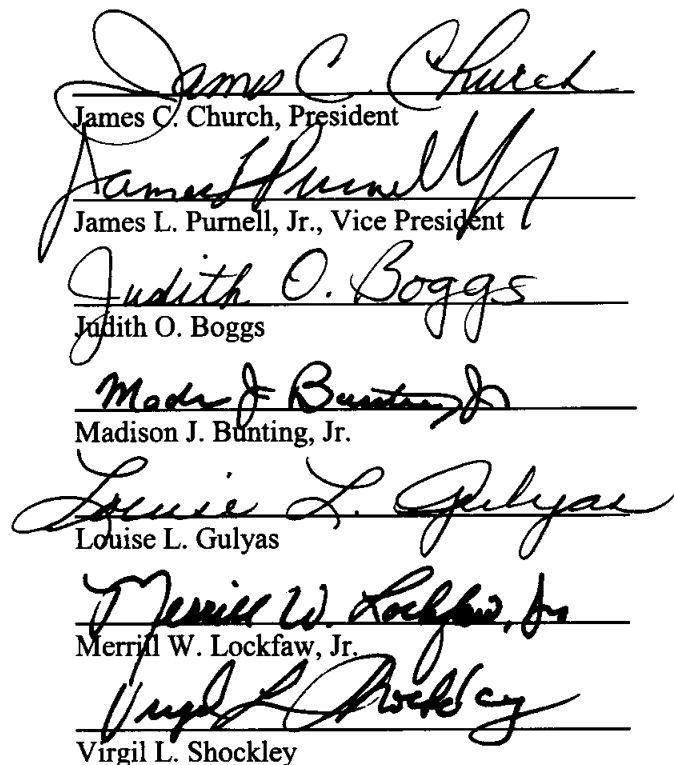 James C. Church
James C. Church, President
James L Purnell Jr
James L. Purnell, Jr., Vice President
Judith O. Boggs
Judith O. Boggs
Madison J Bunting, Jr
Madison J. Bunting, Jr.
Louise L. Gulyas
Louise L. Gulyas
Merrill W. Lockfaw, Jr
Merrill W. Lockfaw, Jr.
Virgil L. Shockley
Virgil L. Shockley